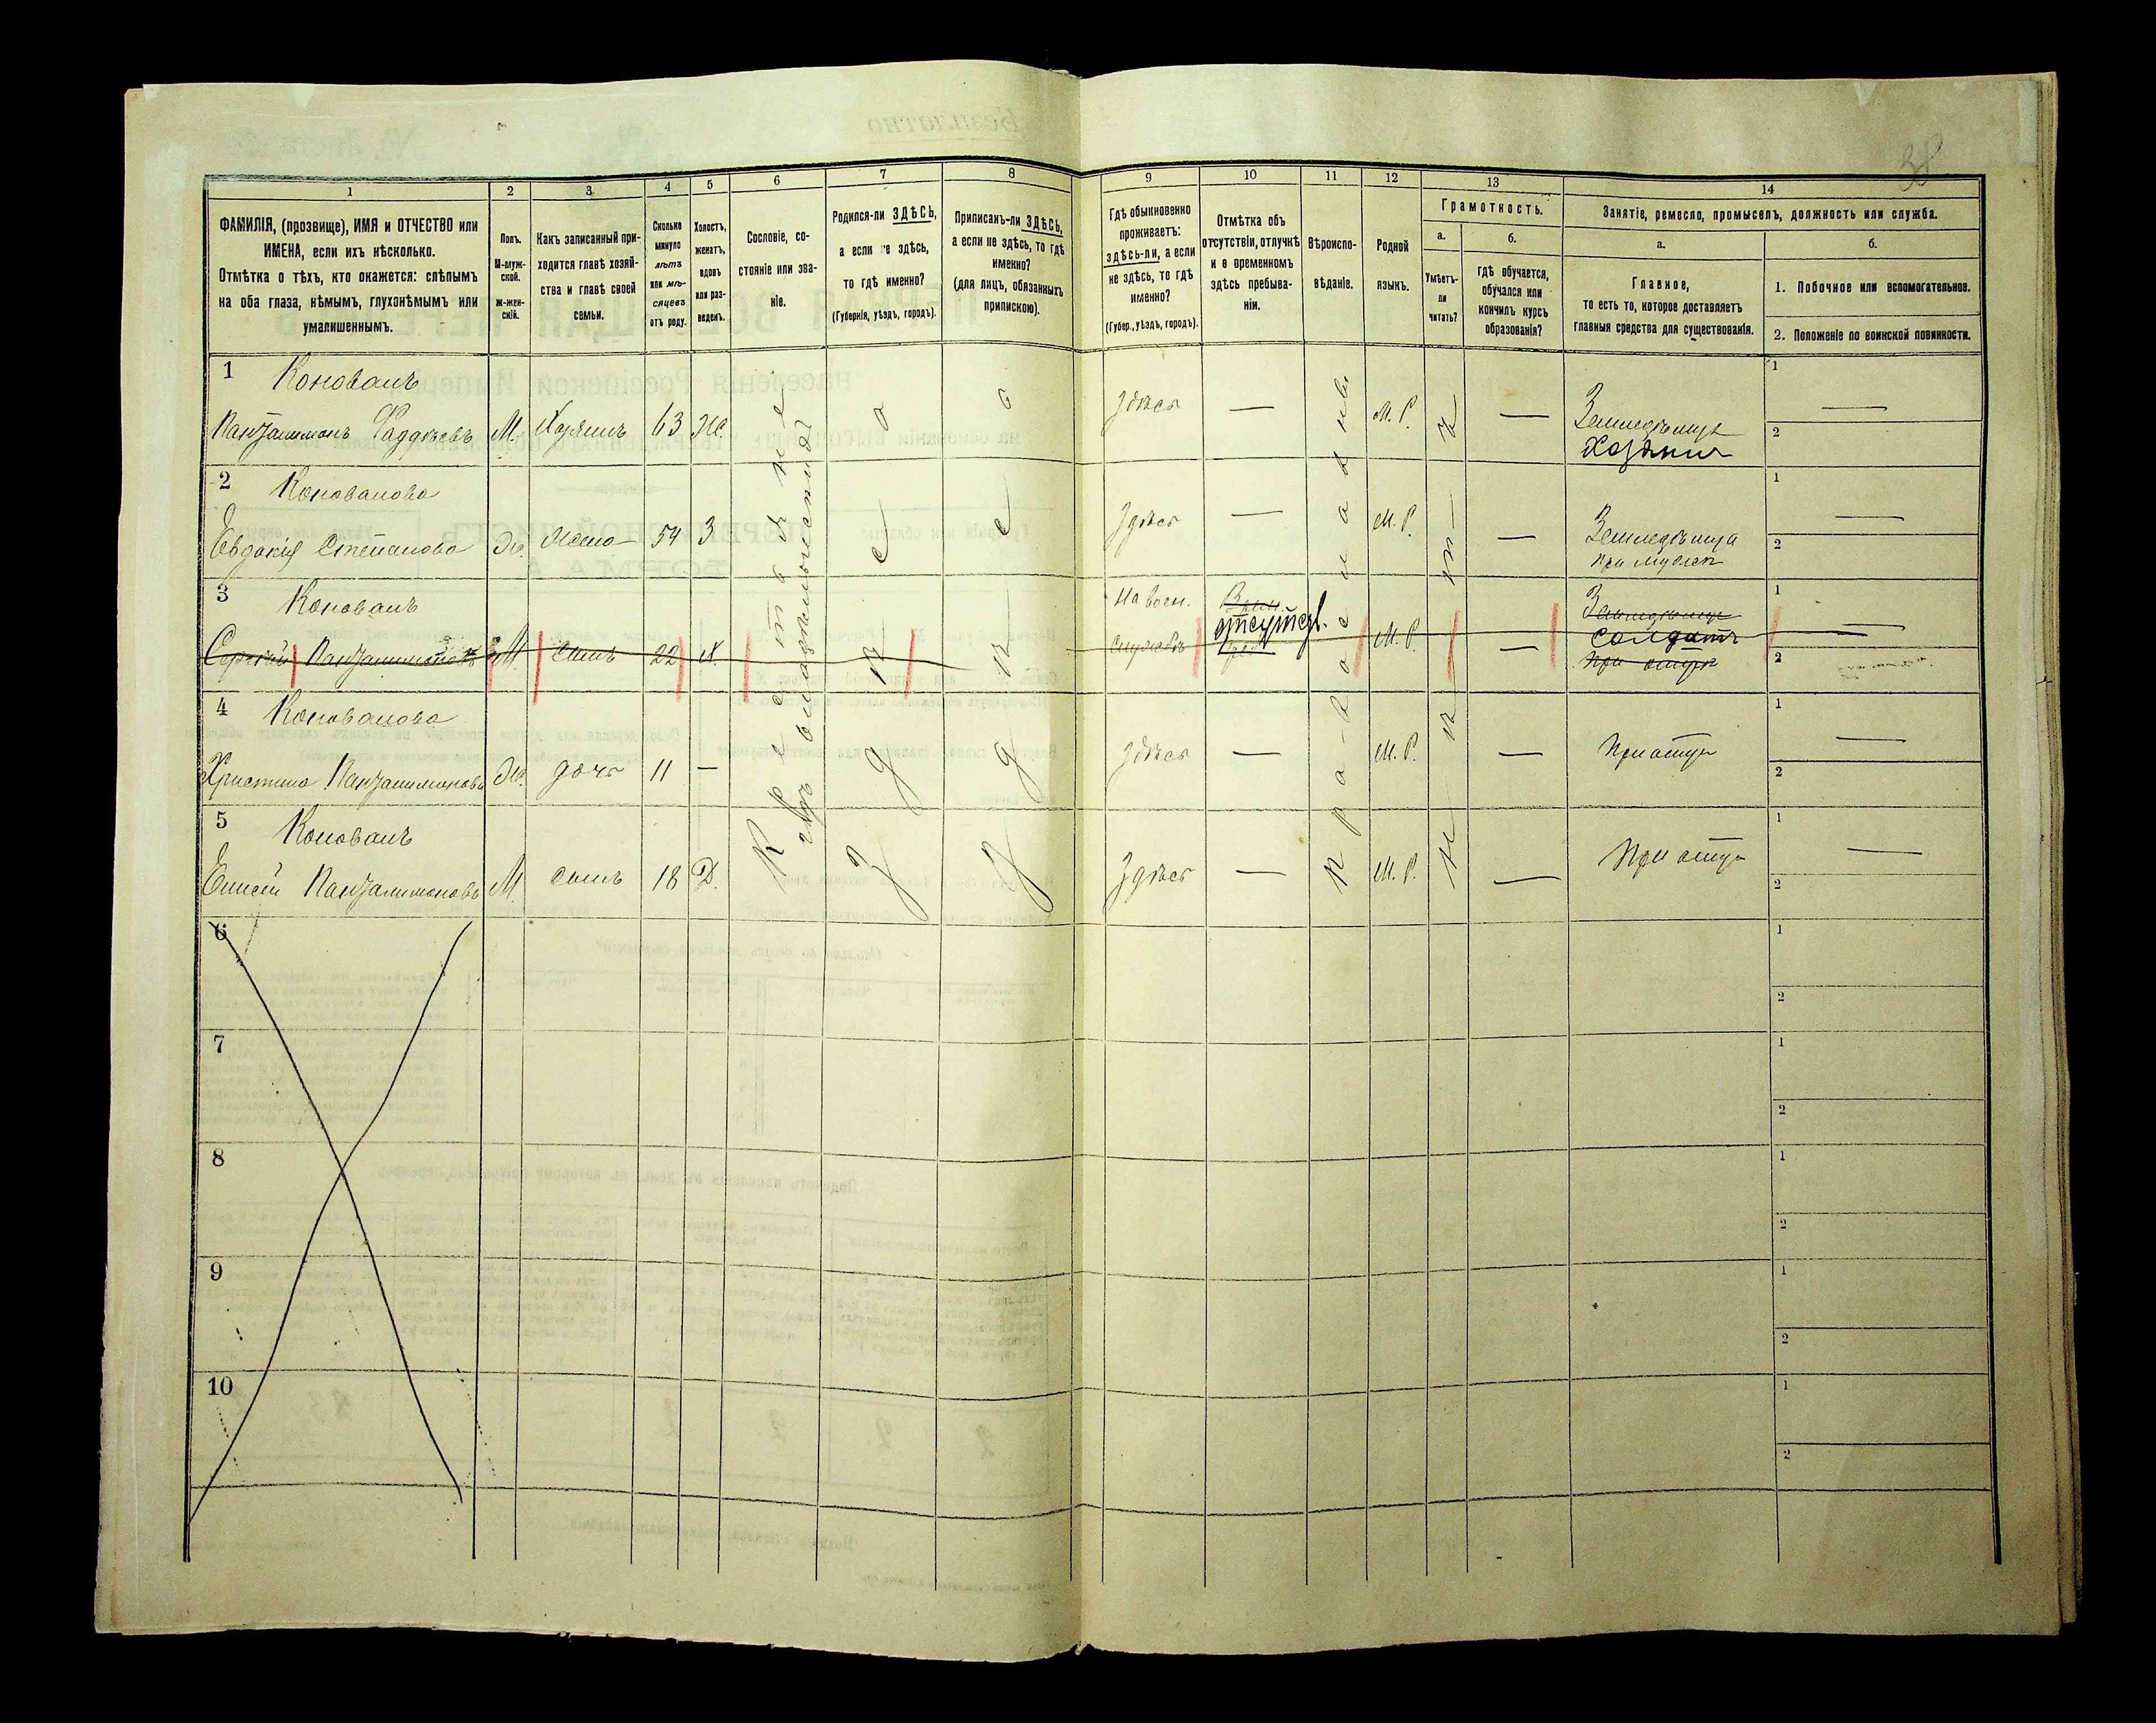 38
1 2 3 4 5 6 7 8 9 10 11 12 13 14
ФАМИЛІЯ, (прозвище), ИМЯ и ОТЧЕСТВО или
ИМЕНА, если ихъ нѣсколько.
Отмѣтка о тѣхъ, кто окажется: слѣпымъ
на оба глаза, нѣмымъ, глухонѣмымъ или
умалишеннымъ.
Полъ.
М-муж-
ской.
Ж-жен-
скій.
Какъ записанный при-
ходится главѣ хозяй-
ства и главѣ своей
семьи.
Сколько
минуло
лѣтъ
или мѣ-
сяцевъ
отъ роду.
Холостъ,
женатъ,
вдовъ
или раз-
веденъ.
Сословіе, со-
стояніе или зва-
ніе.
Родился-ли ЗДѢСЬ,
а если не здѣсь,
то гдѣ именно?
(Губернія, уѣздъ, городъ).
Приписанъ-ли ЗДѢСЬ,
а если не здѣсь, то гдѣ
именно?
(для лицъ, обязанныхъ
припискою).
Гдѣ обыкновенно
проживаетъ:
здѣсь-ли, а если
не здѣсь, то гдѣ
именно?
(Губер., уѣздъ, городъ).
Отмѣтка объ
отсутствіи, отлучкѣ
и о временномъ
здѣсь пребыва-
ніи.
Вѣроиспо-
вѣданіе.
Родной
языкъ.
Грамотность.
а.
Умѣетъ-
ли
читать?
б.
Гдѣ обучается,
обучался или
кончилъ курсъ
образованія?
Занятіе, ремесло, промыселъ, должность или служба.
а.
Главное,
то есть то, которое доставляетъ
главныя средства для существованія.
б.
1. Побочное или вспомогательное.
2. Положеніе по воинской повинности.
1 Коновалъ
Пантелимонъ Фаддѣевъ М. Хозяинъ 63 Ж. Здѣсь — М. Р. — Земледѣлецъ
Хозяинъ
2 Коновалова
Евдокія Степанова Ж. Жена 54 З Здѣсь — М. Р. — Земледѣлица
при мужѣ
3 Коновалъ
Сергѣй Пантелимоновъ М сынъ 22 Х. На воен.
службѣ отсутств. М. Р. — солдатъ
при отцѣ
4 Коновалова
Христина Пантелимонова Ж. дочь 11 — Здѣсь — М. Р. — При отцѣ
5 Коновалъ
Елисей Пантелимоновъ М. сынъ 18 Х. Здѣсь — М. Р. — При отцѣ
Крестьяне
Здѣсь
Здѣсь
Православный
Нѣтъ
6
7
8
9
10